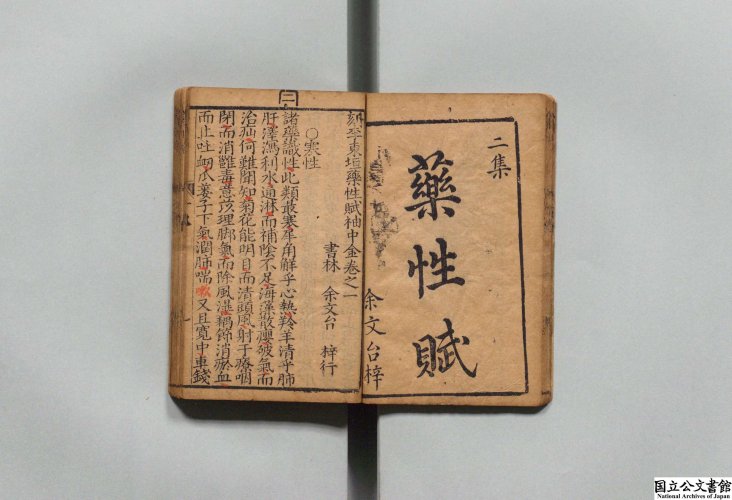 二集
藥性賦
余文台梓
二
刻李東垣藥性賦袖中金卷之一
書林 余文台 梓行
○寒性
諸藥識性此類最寒犀角解乎心熱羚羊清乎肺
肝澤瀉利水通淋而補陰不足海藻散癭破氣而
治疝何難聞知菊花能明目而清頭風射干療咽
閉而消癰毒薏苡理脚氣而除風濕藕節消瘀血
而止吐衂瓜蔞子下氣潤肺喘嗽又且寬中車錢
国立公文書館
National Archives of Japan